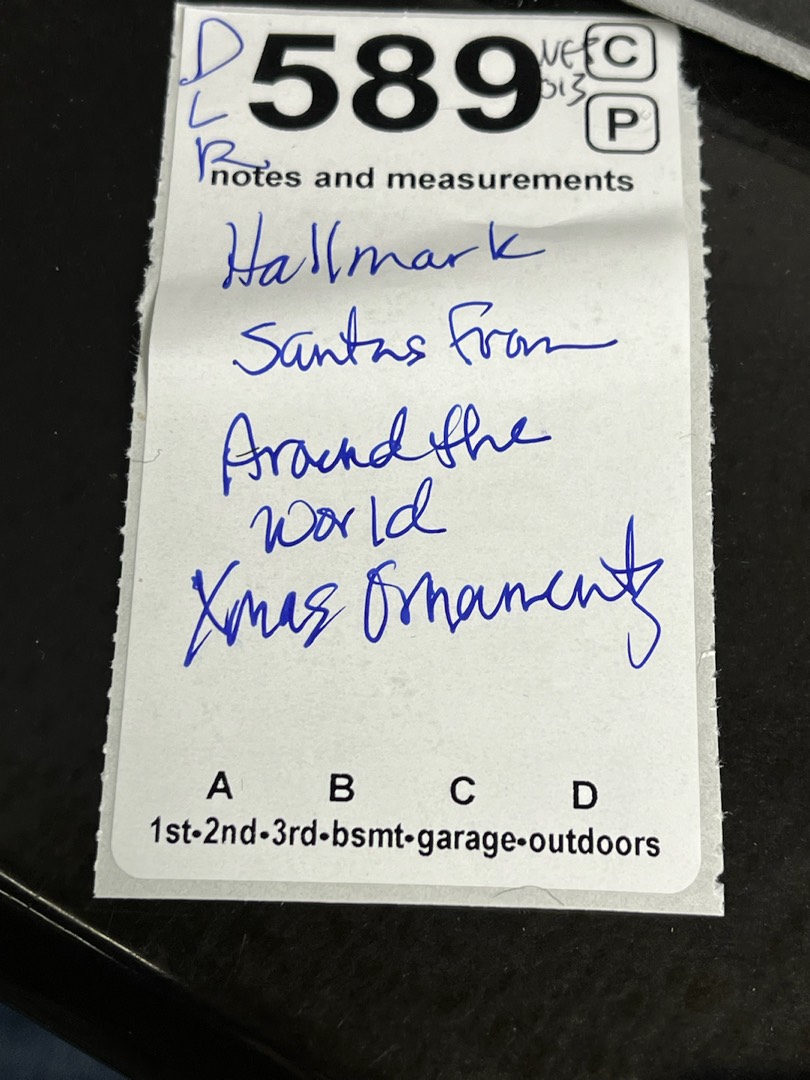 DLR
589
NEF
013
C
P
notes and measurements
Hallmark
Santas From
Around the
World
Xmas Ornaments
A B C D
1st•2nd•3rd•bsmt•garage•outdoors